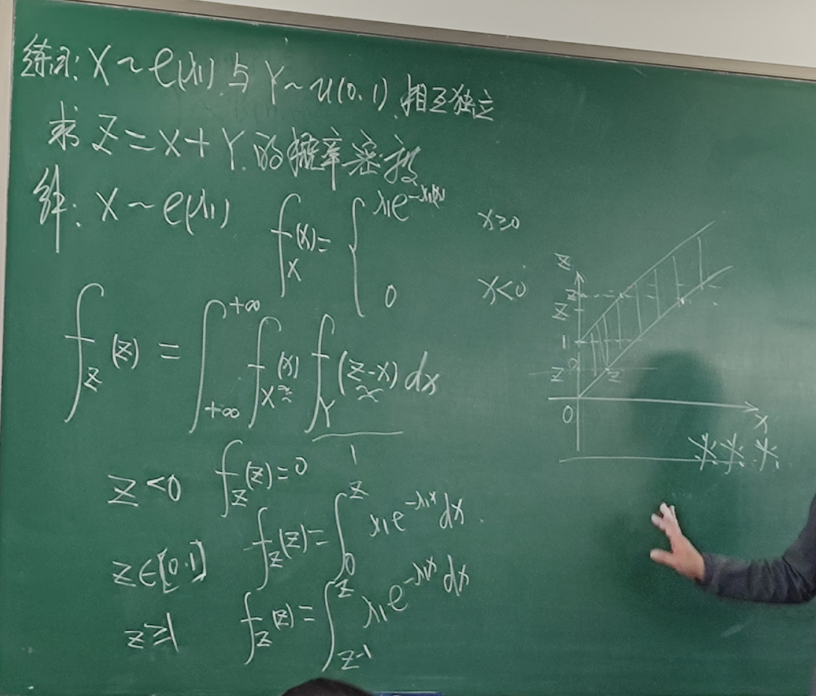 练习: X ~ e(λ₁) 与 Y ~ U(0,1) 相互独立
求 Z = X + Y 的概率密度
解: X ~ e(λ₁) f_X(x) = { λ₁e^{-λ₁x} x≥0
0 x<0
f_Z(z) = ∫_{+∞}^{+∞} f_X(x) f_Y(z-x) dx
1
z<0 f_Z(z)=0
z∈[0,1] f_Z(z) = ∫_0^z λ₁e^{-λ₁x} dx.
z≥1 f_Z(z) = ∫_{z-1}^z λ₁e^{-λ₁x} dx
z
z
z
1
z
z
0
x